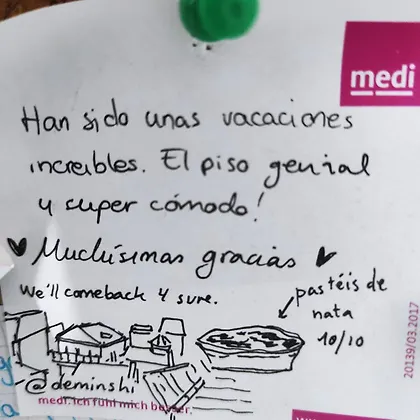 medi
Han sido unas vacaciones
increíbles. El piso genial
y super cómodo!
Muchísimas gracias
We'll comeback 4 sure.
pastéis de
nata
10/10
@deminshi
medi. ich fühl mich besser.
20139/03.2017